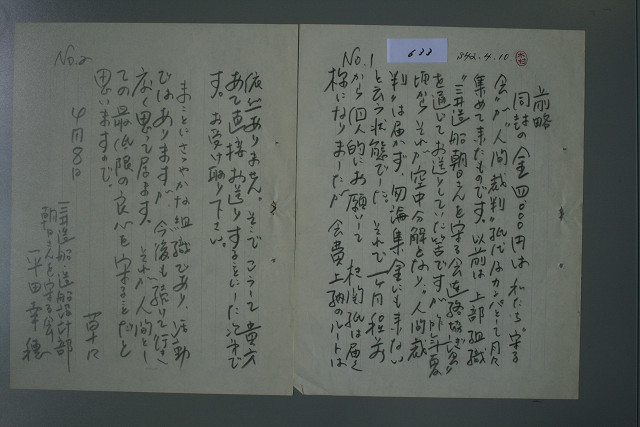 633
S42.4.10
No.1
前略
同封の金四〇〇〇円は私たち"守る
会"が"人間裁判"紙代はカンパとして月々
集めて来たものです。以前は上部組織
"三井造船朝日さんを守る会連絡協ぎ会"
を通じてお送りしていた筈ですが、昨年夏
頃から、それが空中分解となり、人間裁
判"は届かず、勿論集金にも来ない
と云う状態でした。それで一ヶ月程前
から個人的にお願いして、机関紙は届く
様になりましたが、会費上納のルートは
No.2
依然ありません。そこで、こうして貴方
あて直接お送りすることにした次第で
す。お受け取り下さい。
まことにささやかな組織であり、活動
ではありますが、今後も続けて行き
たく思って居ます。それが人間とし
ての最低限の良心を守ることだと
思いますので。
草々
4月8日
三井造船造船設計部
朝日さんを守る会
平田幸穂